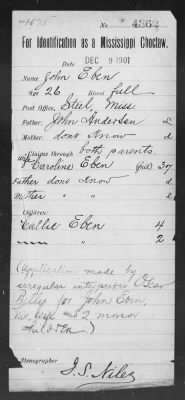 No. 4362
For Identification as a Mississippi Choctaw.
Date DEC 9 1901
Name John Eben
Age 26 Blood full
Post Office, Steel, Miss.
Father, John Anderson d
Mother, dont know d
Claims through both parents
wife Caroline Eben (full) 37
Father dont know d
Mother " " d
Children:
Callie Eben 4
" " 2
(Application made by
irregular interpreter Oscar
Billy for John Eben,
his wife and 2 minor
children.)
Stenographer
J. S. Niles